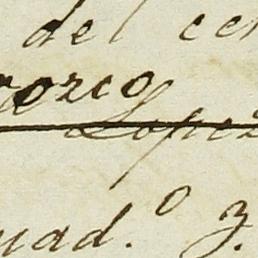 del cen
orozco
Lopez
uad.º 3.